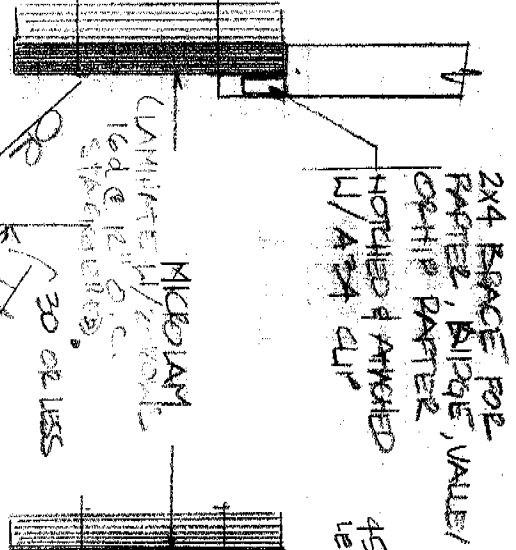 2X4 BRACE FOR
RAFTER, RIDGE, VALLEY
OR HIP RAFTER
NOTCHED & ATTACHED
W/ A34 CLIP
MICROLAM
LAMINATE W/
16d @ 12" O.C.
STAGGERED
OR
30 OR LESS
45